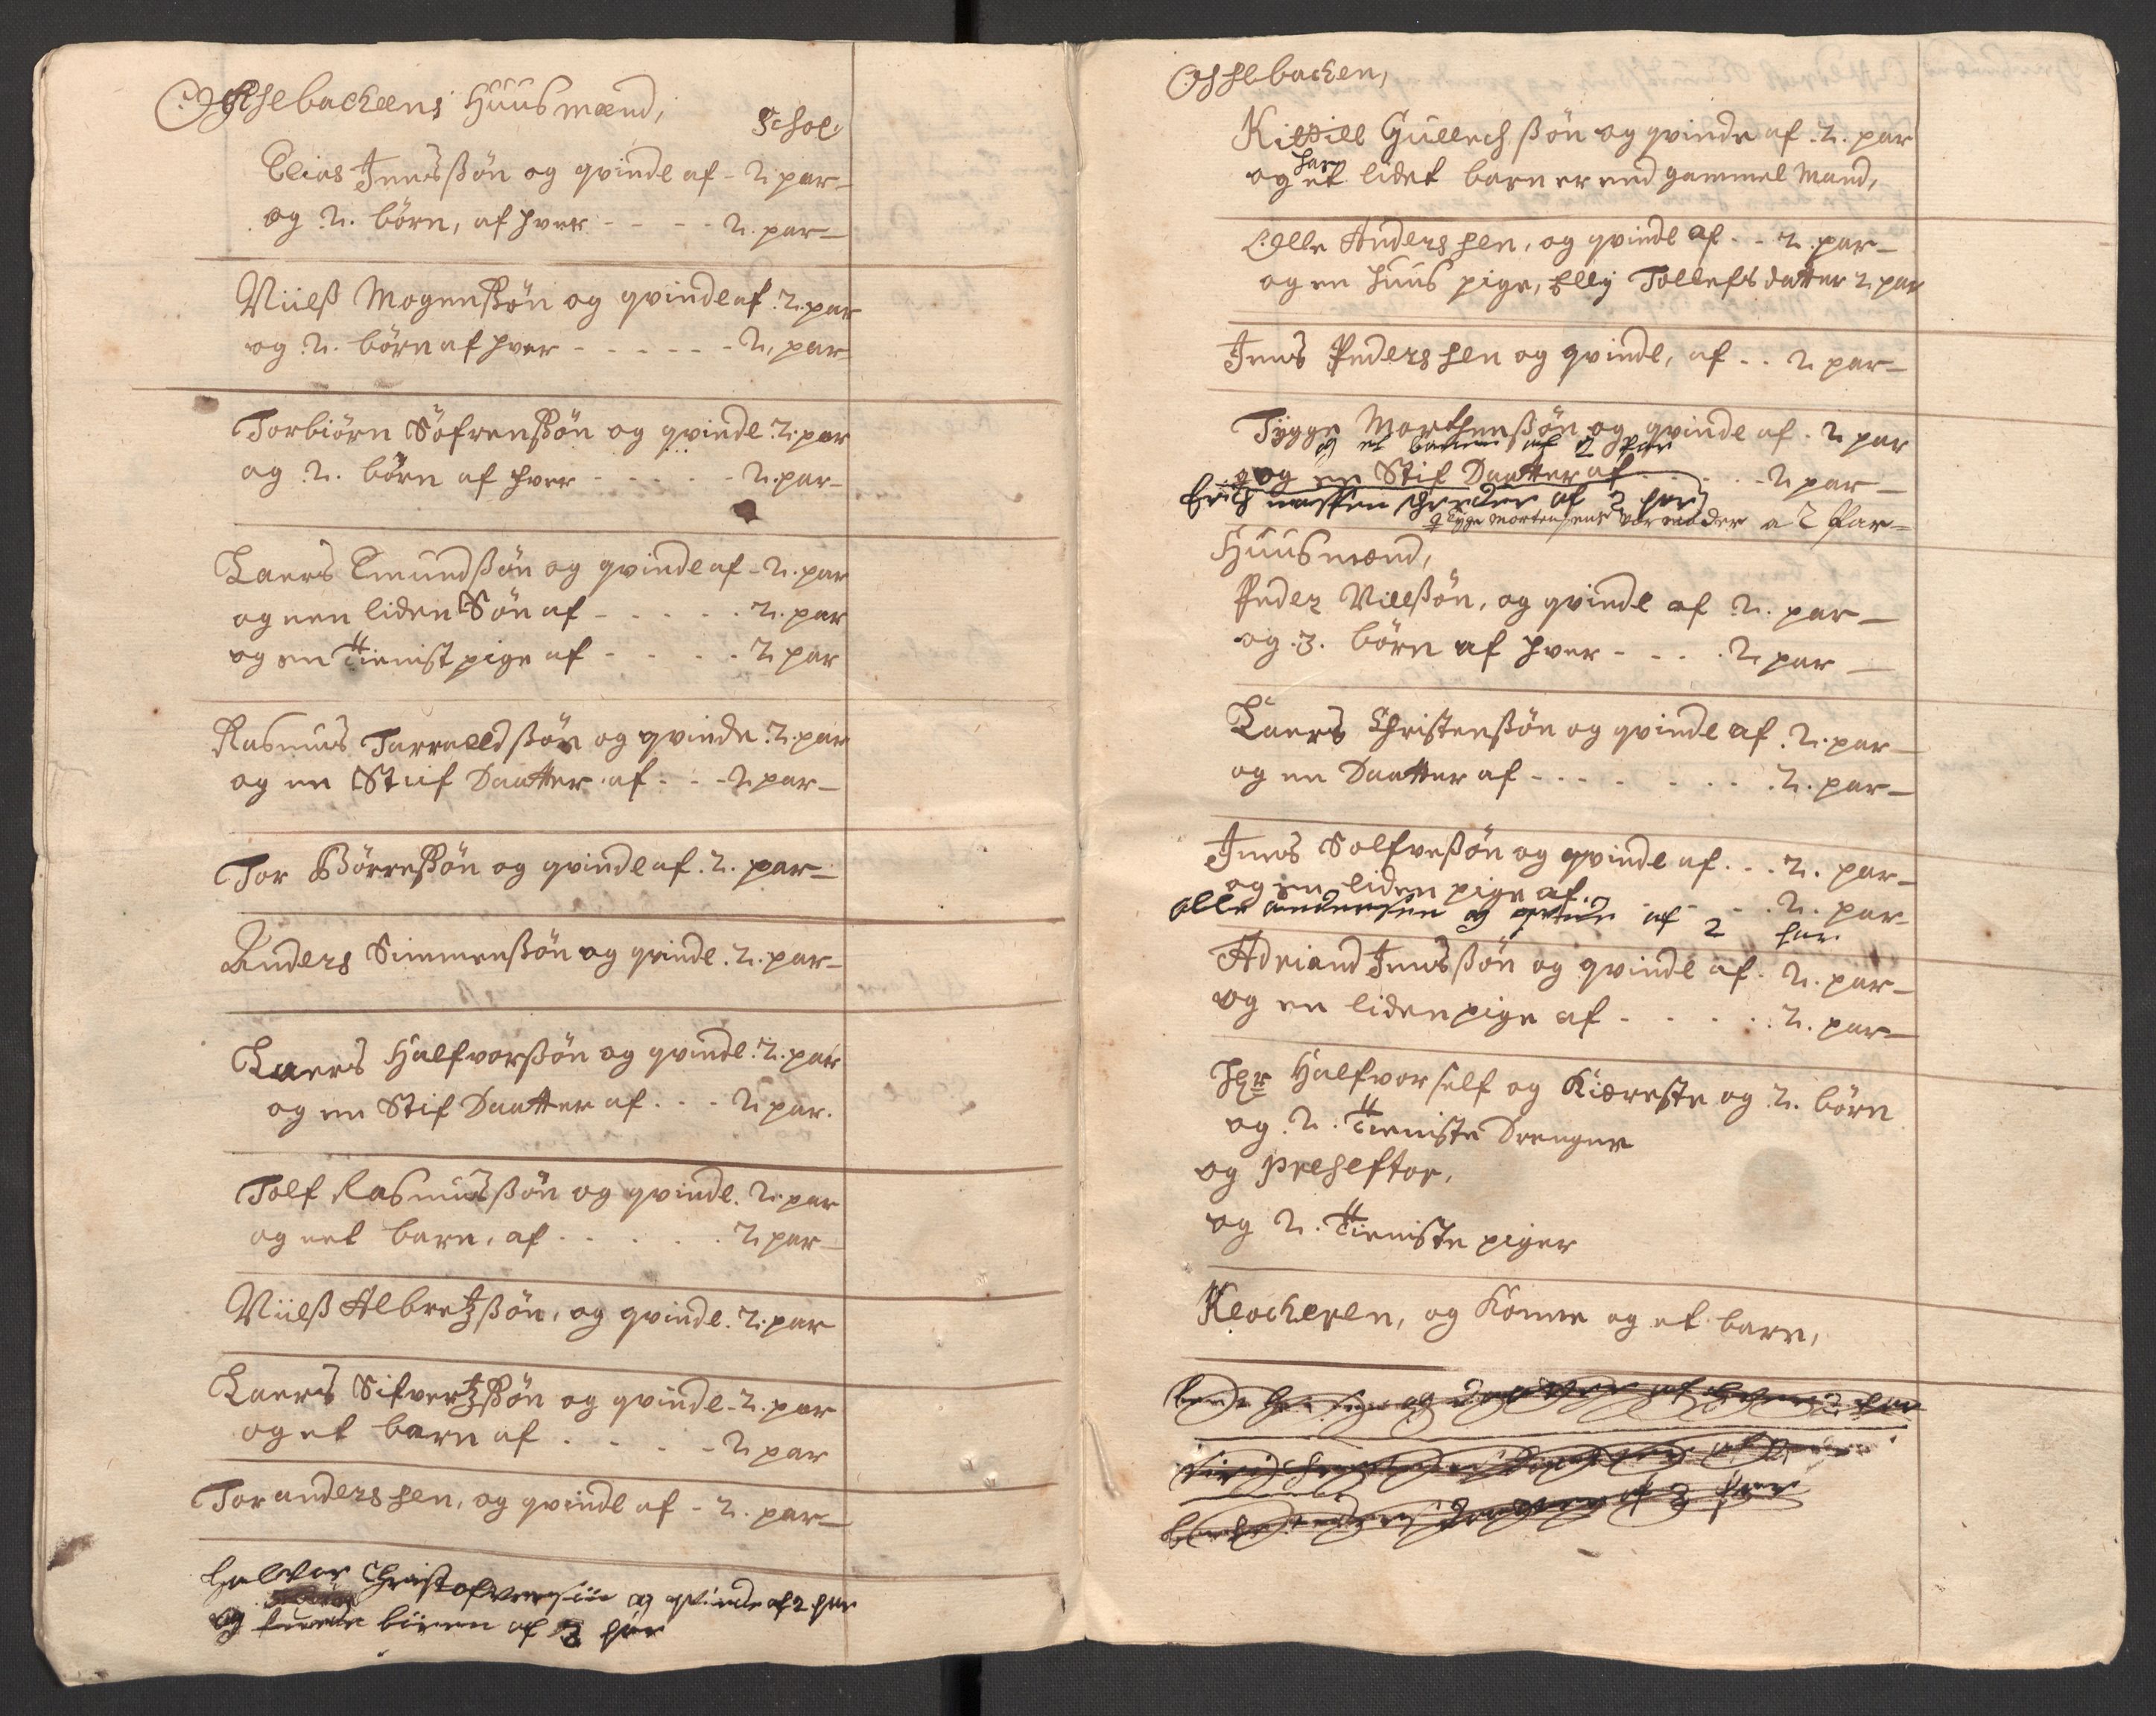 Eschebackens Huusmænd,
Schoe
Elias Jensßøn og qvinde af - 2 par
og 2. børn, af hver - - - - 2. par
Niilß Mogenßøn og qvinde af 2. par
og 2. børn af hver - - - - - - 2. par
Torbiørn Söfrenßøn og qvinde 2. par
og 2. børn af hver - - - - - 2. par
Laers Emundßøn og qvinde af - 2. par
og een liden Søn af - - - - - 2. par
og en Tienist pige af - - - - 2 par
Rasmus Tarraeldßøn og qvinde 2. par
og en Stiif Daatter af - - - 2 par
Tor Börreßøn og qvinde af. 2. par
Anders Simmenßøn og qvinde. 2. par
Laers Halfvorßøn og qvinde. 2. par
og en Stif Daatter af . - - 2 par.
Tolf Rasmusßøn og qvinde. 2. par
og eet barn, af . . . . . . 2 par
Niilß Albretzßøn, og qvinde. 2. par
Laers Sifvertzßøn og qvinde - 2. par
og et barn af . - - - - 2 par
Tor andersen, og qvinde af - 2. par
halvor Christofversiin og qvinde af 2 par
og biren af 3 par
Eschebachen,
Kittill Gullichßøn og qvinde af . 2. par
har
og et lidet barn er end gammel Mand,
Olle Andersen, og qvinde af - - 2. par
og en huus pige, Elly Tollefsdatter 2 par
Jens Pedersen og qvinde, af - - 2 par
Tygge Morthenßøn og qvinde af . 2 par
og et baren af 2 par
og en Stif Daatter af - - - - - 2 par
Erich af 2 par
Tyge Mortensens Vermoder a 2 Par
Huusmænd,
Peder Nielßøn, og qvinde af 2. par
og 3. børn af hver - - - . 2 par
Laers Christenßøn og qvinde af . 2. par
og en Daatter af - - - - - - - . 2. par
Jens Solfveßøn og qvinde af . - . 2. par
og en liden pige af. - - - - . 2. par
olle andersen og qvinde af 2 par
Adriand Jensßøn og qvinde af . 2. par
og en liden pige af - - - - . 2. par
Hr Halfvor self og Kiæreste og 2. børn
og 2. Tieniste Drenger
og Preseptor,
og 2. Tieniste piger
Klocheren, og Konne og et barn,